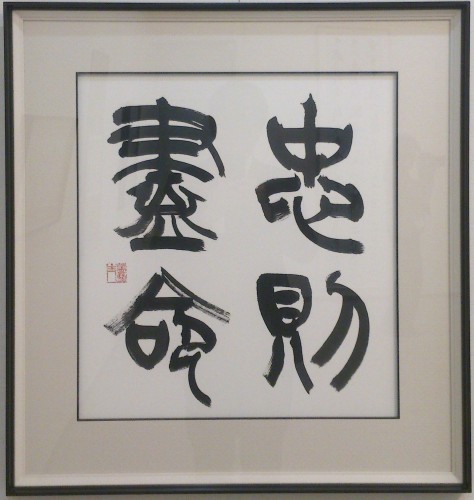 忠則
盡命